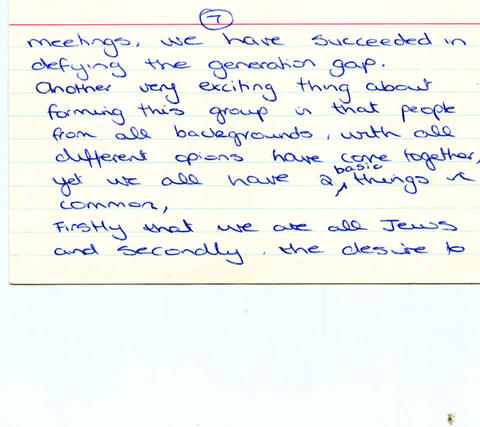 7
meetings, we have succeeded in
defying the generation gap.
Another very exciting thing about
forming this group is that people
from all backgrounds, with all
different opions have come together,
yet we all have 2 basic things in
common,
Firstly that we are all Jews
and secondly, the desire to